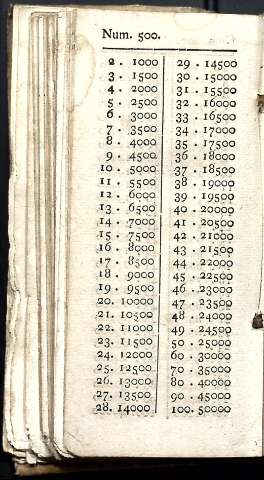 Num. 500.
2 . 1000
3 . 1500
4 . 2000
5 . 2500
6 . 3000
7 . 3500
8 . 4000
9 . 4500
10 . 5000
11 . 5500
12 . 6000
13 . 6500
14 . 7000
15 . 7500
16 . 8000
17 . 8500
18 . 9000
19 . 9500
20. 10000
21. 10500
22. 11000
23. 11500
24. 12000
25. 12500
26. 13000
27. 13500
28. 14000
29 . 14500
30 . 15000
31 . 15500
32 . 16000
33 . 16500
34 . 17000
35 . 17500
36 . 18000
37 . 18500
38 . 19000
39 . 19500
40 . 20000
41 . 20500
42 . 21000
43 . 21500
44 . 22000
45 . 22500
46 . 23000
47 . 23500
48 . 24000
49 . 24500
50 . 25000
60 . 30000
70 . 35000
80 . 40000
90 . 45000
100. 50000